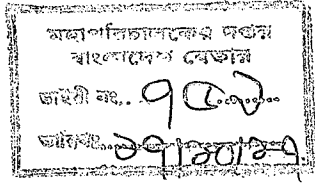 মহাপরিচালকের দপ্তর
বাংলাদেশ বেতার
ডাইরী নং...৭৫৬...
তারিখঃ...১৭/১০/১৭